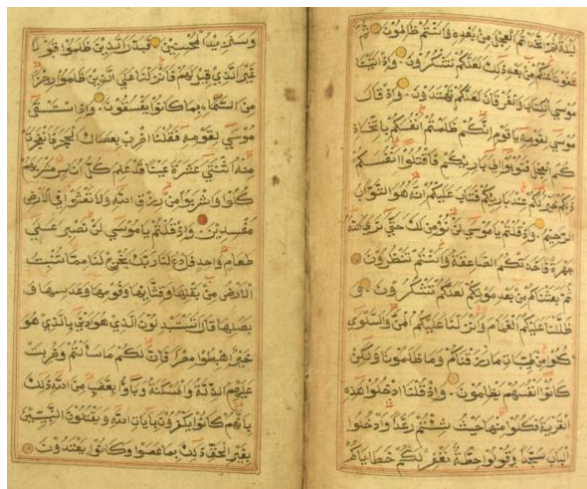 ليلة ثم اتخذتم العجل من بعده وانتم ظالمون ثم
عفونا عنكم من بعد ذلك لعلكم تشكرون واذ اتينا
موسى الكتاب والفرقان لعلكم تهتدون واذ قال
موسى لقومه يا قوم انكم ظلمتم انفسكم باتخاذ
كم العجل فتوبوا الى بارئكم فاقتلوا انفسكم
ذلكم خير لكم عند بارئكم فتاب عليكم انه هو التواب
الرحيم واذ قلتم يا موسى لن نؤمن لك حتى نرى الله
جهرة فاخذتكم الصاعقة وانتم تنظرون
ثم بعثناكم من بعد موتكم لعلكم تشكرون و
ظللنا عليكم الغمام وانزلنا عليكم المن والسلوى
كلوا من طيبات ما رزقناكم وما ظلمونا ولكن
كانوا انفسهم يظلمون واذ قلنا ادخلوا هذه
القرية فكلوا منها حيث شئتم رغدا وادخلوا
الباب سجدا وقولوا حطة نغفر لكم خطاياكم
وسنزيد المحسنين فبدل الذين ظلموا قولا
غير الذي قيل لهم فانزلنا على الذين ظلموا رجزا
من السماء بما كانوا يفسقون واذ استسقى
موسى لقومه فقلنا اضرب بعصاك الحجر فانفجرت
منه اثنتي عشرة عينا قد علم كل اناس مشربهم
كلوا واشربوا من رزق الله ولا تعثوا في الارض
مفسدين واذ قلتم يا موسى لن نصبر على
طعام واحد فادع لنا ربك يخرج لنا مما تنبت
الارض من بقلها وقثائها وفومها وعدسها و
بصلها قال اتستبدلون الذي هو ادنى بالذي هو
خير اهبطوا مصرا فان لكم ما سالتم وضربت
عليهم الذلة والمسكنة وباؤا بغضب من الله ذلك
بانهم كانوا يكفرون بايات الله ويقتلون النبيين
بغير الحق ذلك بما عصوا وكانوا يعتدون